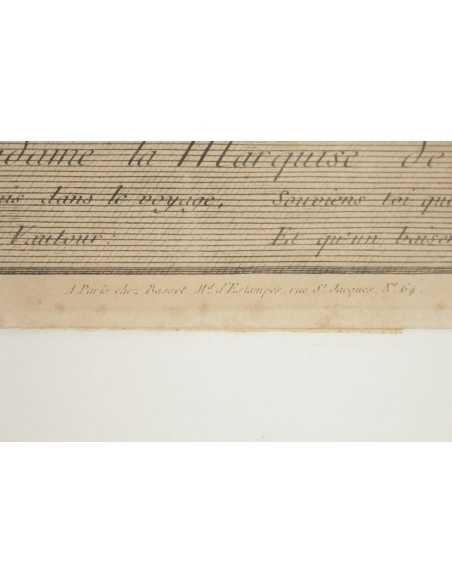 dame la Marquise de
is dans le voyage, Souviens toi que
Vautour: Et qu'un baiser
A Paris chez Basset, Md. d'Estampes, rue St. Jacques, No. 64.